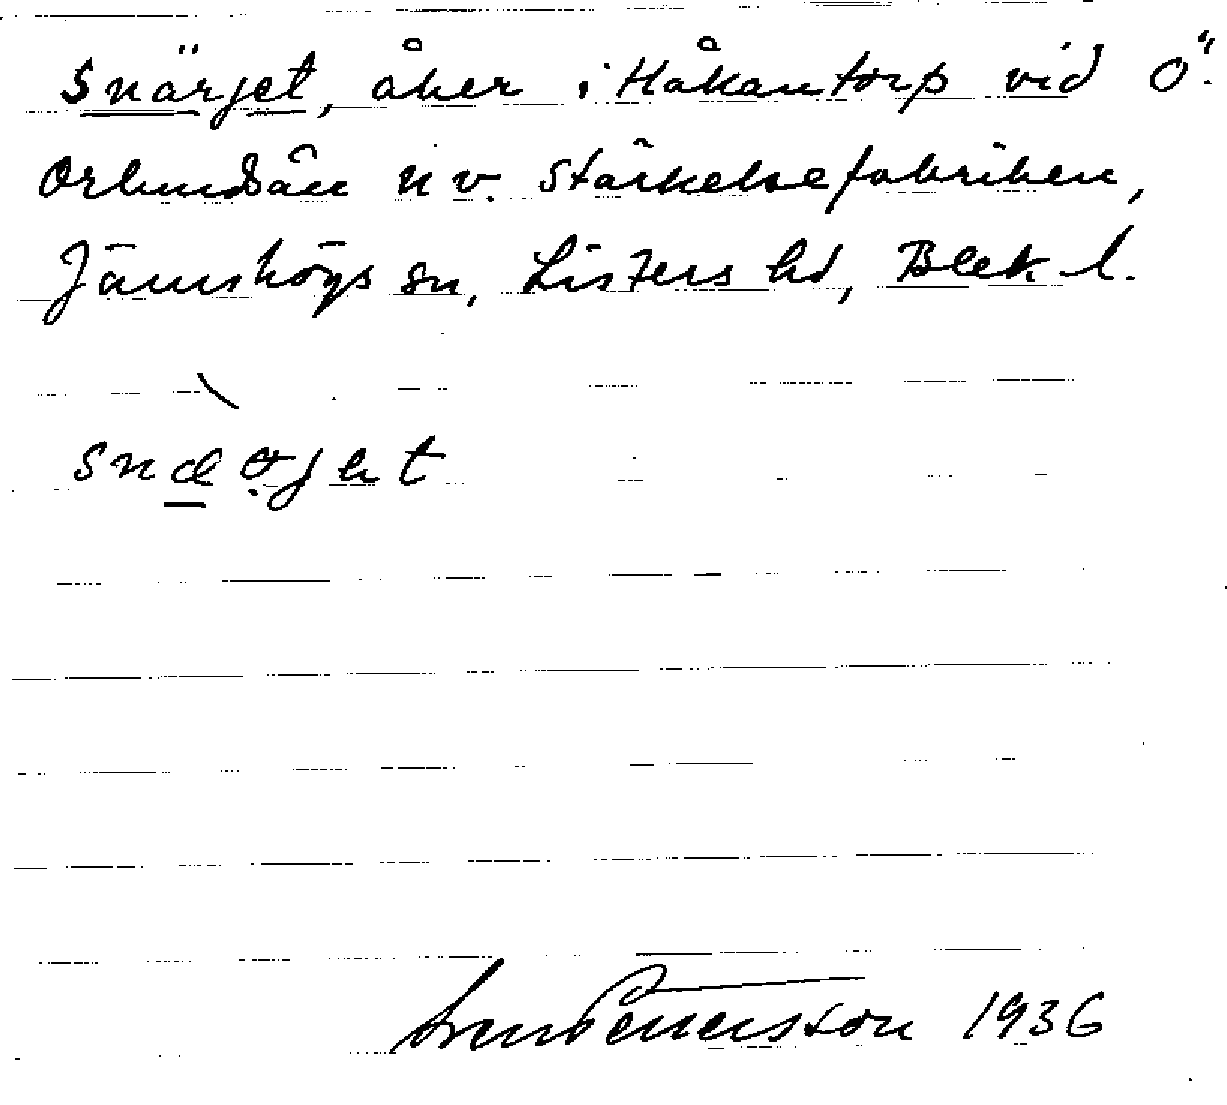 Snärjet, åker i Håkantorp vid Ö.
Orlundsån n v. Stärkelsefabriken,
Jämshögs sn, Listers hd, Blek l.
snæꝛjət
Sven Pettersson 1936